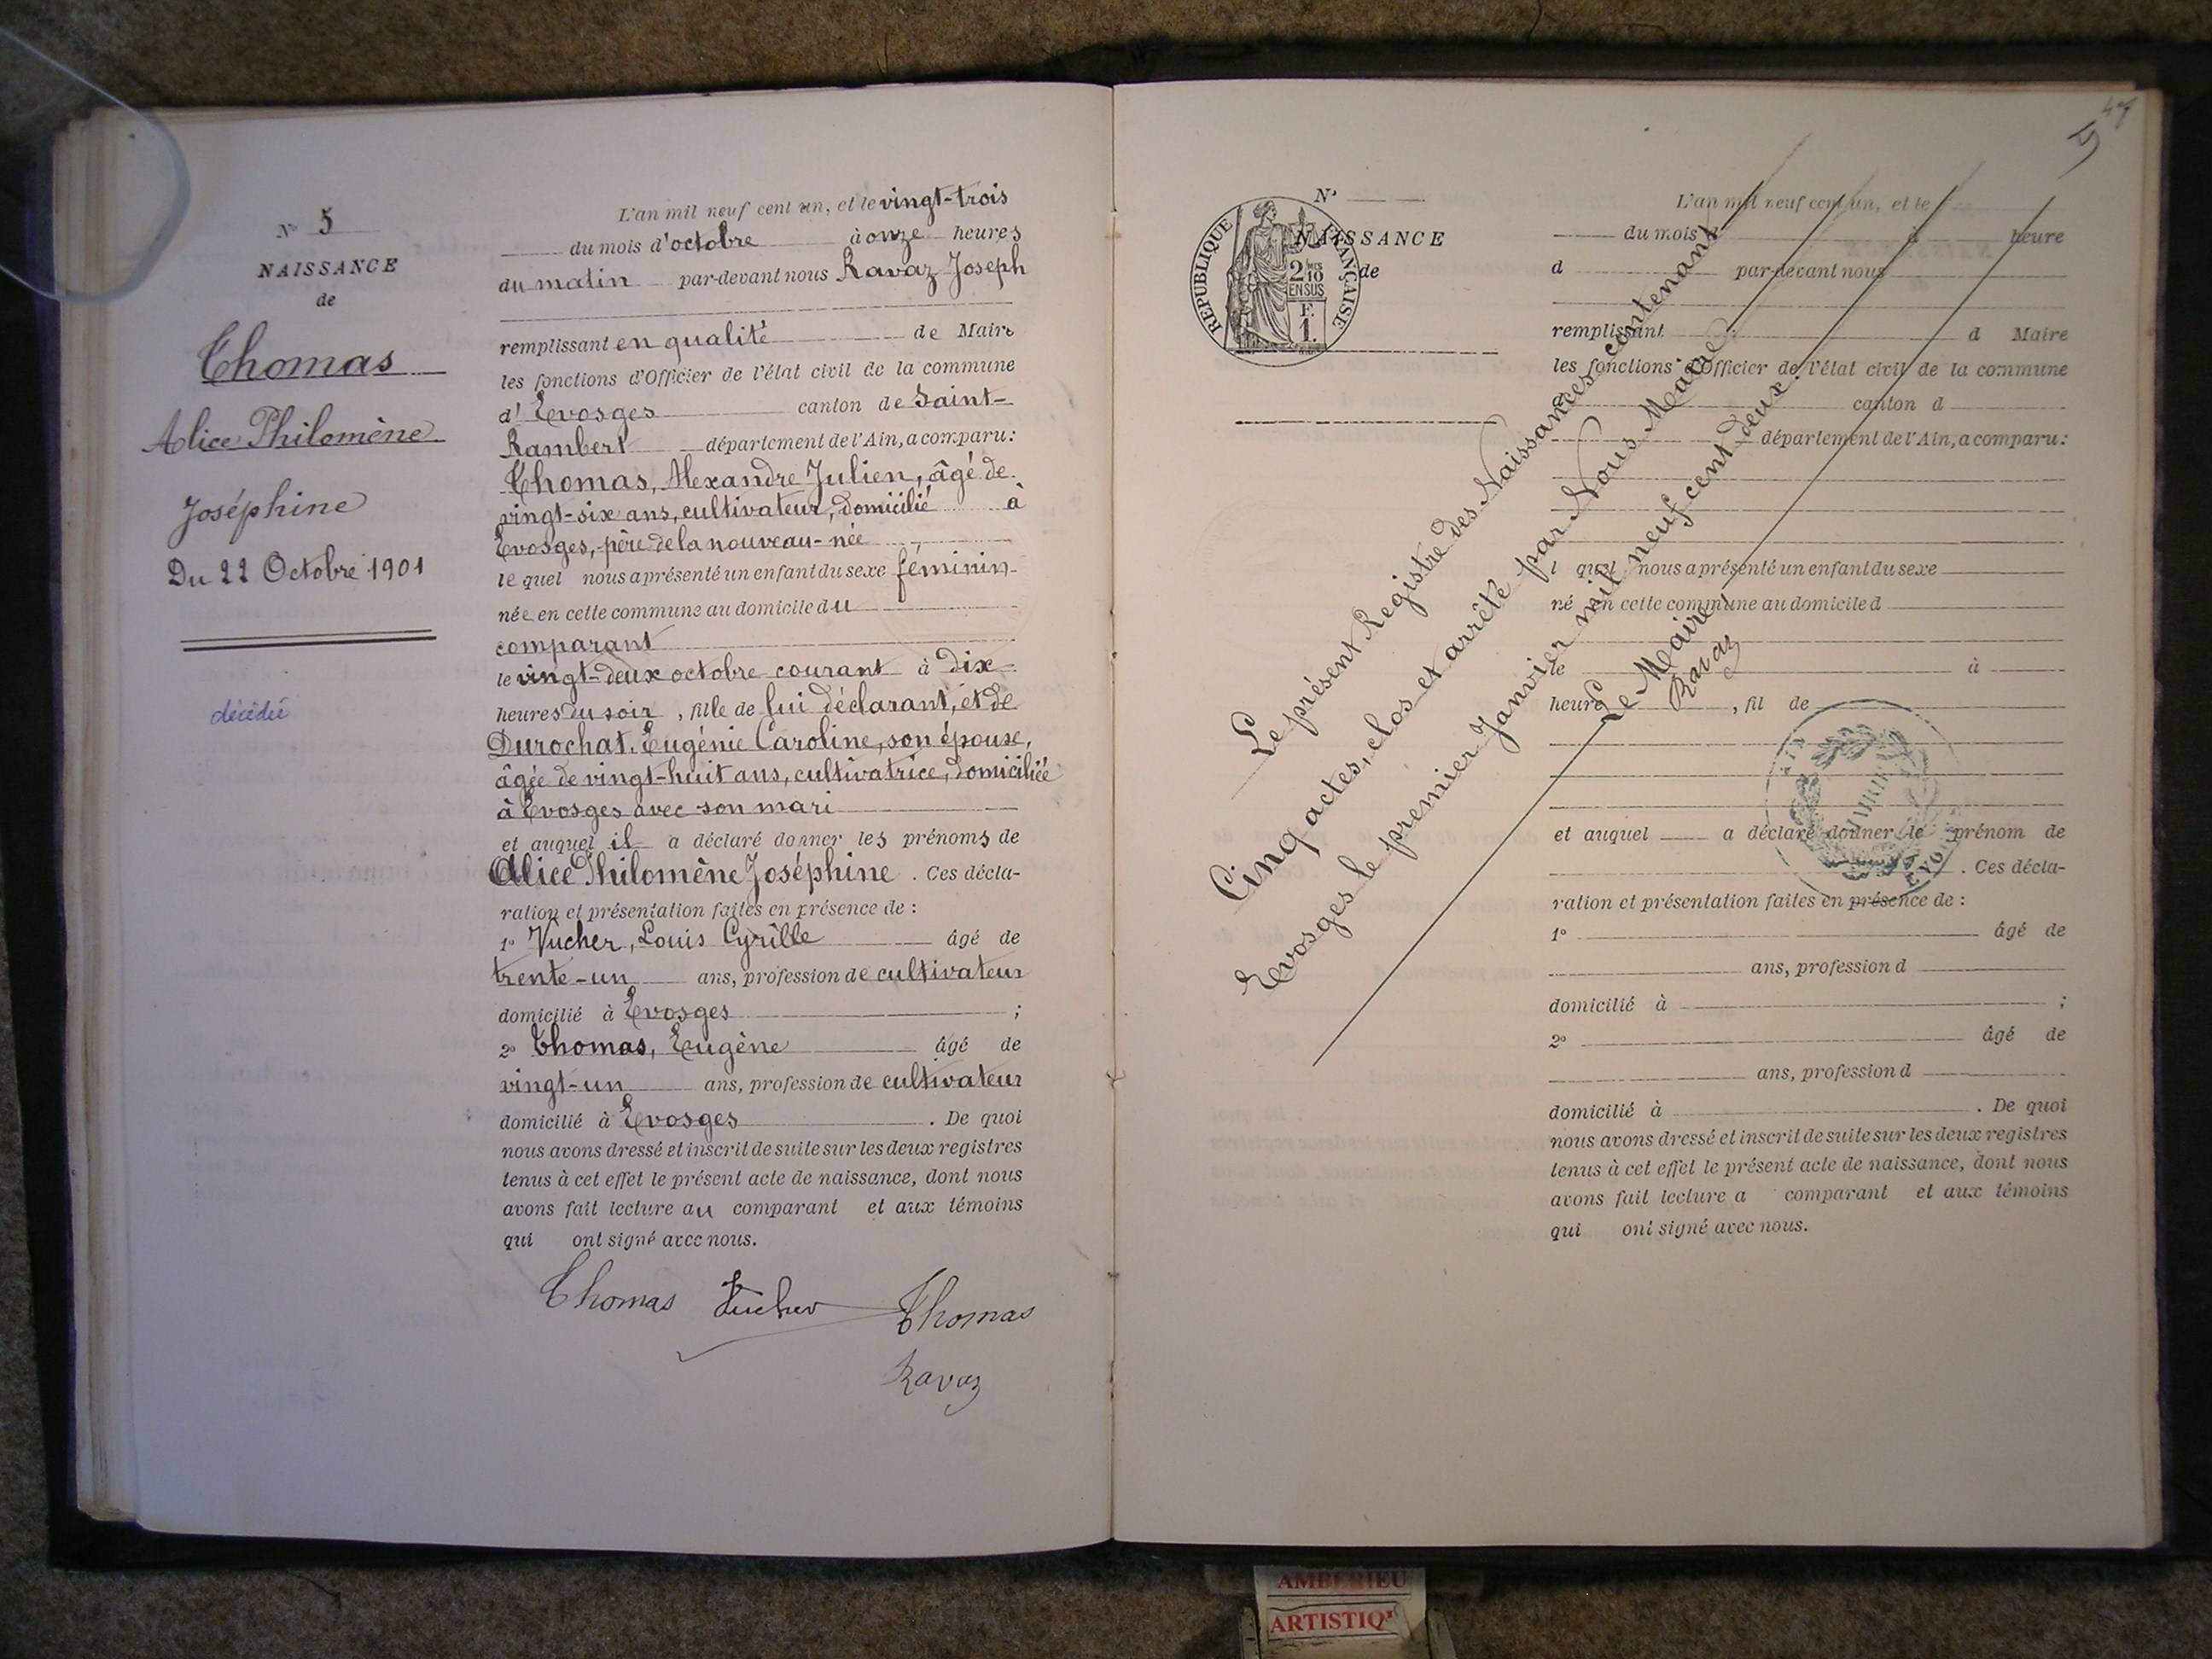 N° 5
NAISSANCE
de
Thomas
Alice Philomène
Joséphine
Du 22 Octobre 1901
décédée
L'an mil neuf cent un, et le vingt-trois
du mois d'octobre à onze heures
du matin par-devant nous Ravaz Joseph
remplissant en qualité de Maire
les fonctions d'Officier de l'état civil de la commune
d'Evosges canton de Saint-
Rambert département de l'Ain, a comparu :
Thomas, Alexandre Julien, âgé de
vingt-six ans, cultivateur, domicilié à
Evosges, père de la nouveau-née
lequel nous a présenté un enfant du sexe féminin
née en cette commune au domicile du
comparant
le vingt-deux octobre courant à dix
heures du soir, fille de lui déclarant, et de
Durochat, Eugénie Caroline, son épouse,
âgée de vingt-huit ans, cultivatrice, domiciliée
à Evosges avec son mari
et auquel il a déclaré donner les prénoms de
Alice Philomène Joséphine. Ces décla-
ration et présentation faites en présence de :
1° Vucher, Louis Cyrille âgé de
trente-un ans, profession de cultivateur
domicilié à Evosges ;
2° Thomas, Eugène âgé de
vingt-un ans, profession de cultivateur
domicilié à Evosges. De quoi
nous avons dressé et inscrit de suite sur les deux registres
tenus à cet effet le présent acte de naissance, dont nous
avons fait lecture au comparant et aux témoins
qui ont signé avec nous.
Thomas Vucher Thomas
Ravaz
47
N°
NAISSANCE
de
RÉPUBLIQUE FRANÇAISE
2/10
EN SUS
F.
1.
L'an mil neuf cent un, et le
du mois d à heure
d par-devant nous
remplissant d Maire
les fonctions d'Officier de l'état civil de la commune
d canton d
département de l'Ain, a comparu :
l quel nous a présenté un enfant du sexe
né en cette commune au domicile d
le à
heure , fil de
et auquel a déclaré donner le prénom de
. Ces décla-
ration et présentation faites en présence de :
1° âgé de
ans, profession d
domicilié à ;
2° âgé de
ans, profession d
domicilié à . De quoi
nous avons dressé et inscrit de suite sur les deux registres
tenus à cet effet le présent acte de naissance, dont nous
avons fait lecture a comparant et aux témoins
qui ont signé avec nous.
Le présent Registre des Naissances contenant
Cinq actes, clos et arrêté par Nous Maire
Evosges le premier Janvier mil neuf cent deux.
Le Maire,
Ravaz
MAIRIE
AIN
AMBERIEU
ARTISTIQ